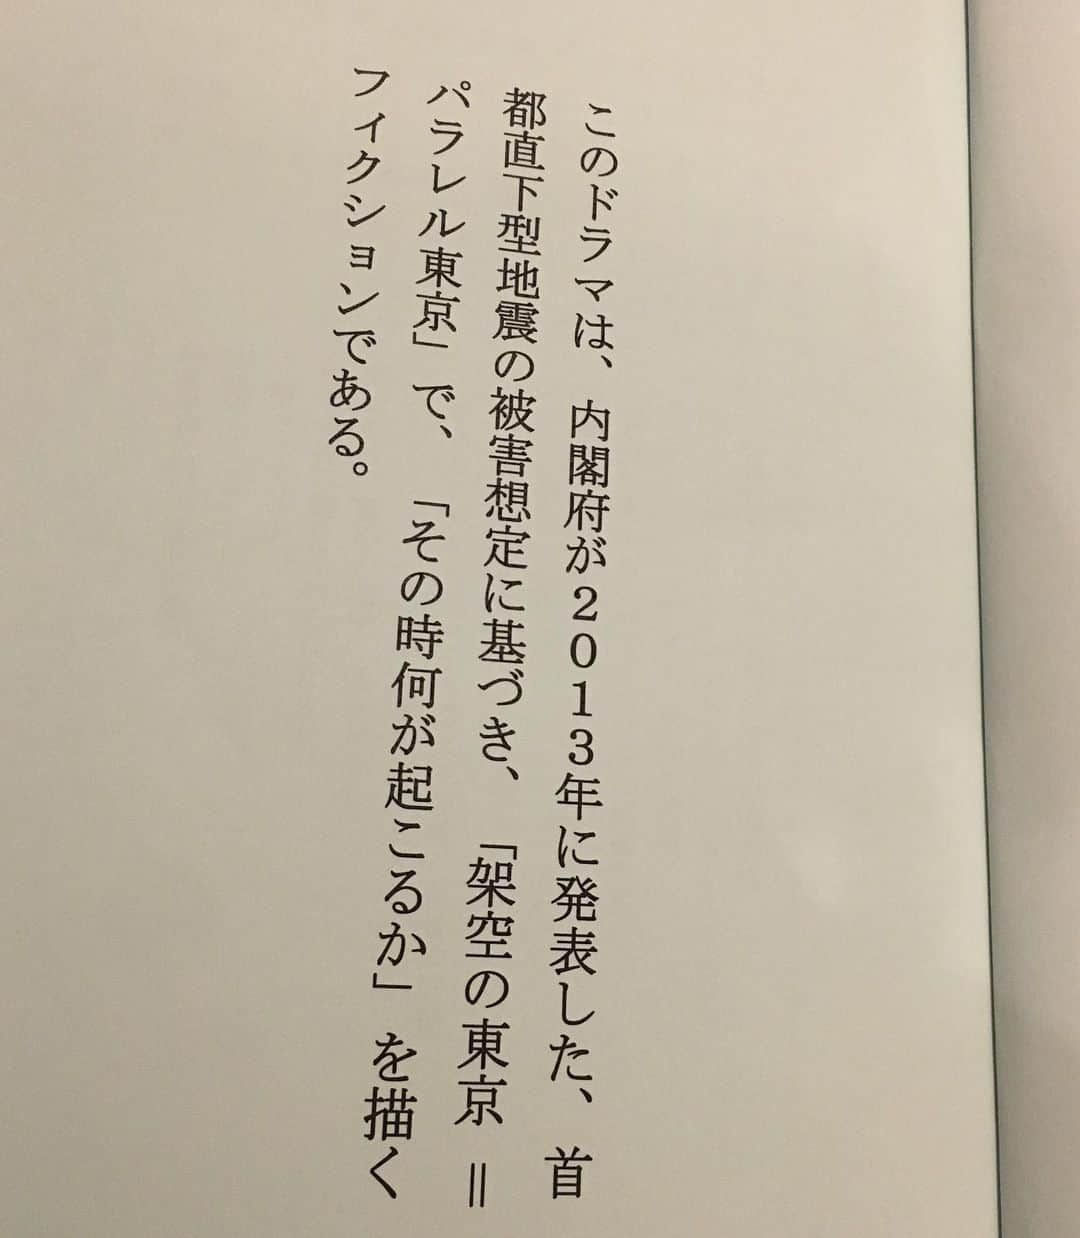 このドラマは、内閣府が２０１３年に発表した、首
都直下型地震の被害想定に基づき、「架空の東京＝
パラレル東京」で、「その時何が起こるか」を描く
フィクションである。